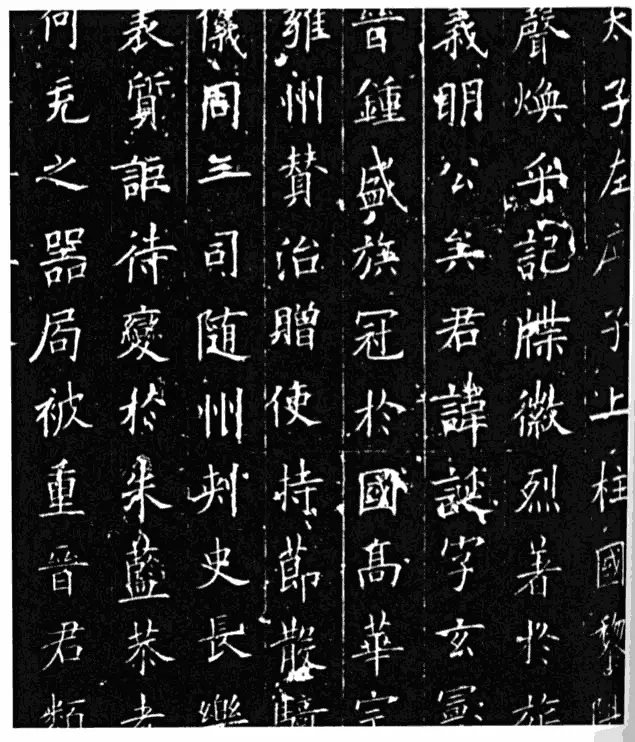 太子左庶子上柱國黎陽
聲煥乎記牒徽烈著於旂
義明公矣君諱誕字玄憲
晉鍾盛族冠於國高華宗
雍州贊治贈使持節散騎
儀同三司随州刺史長樂
表質詎待變於朱藍恭孝
何充之器局被重晉君類